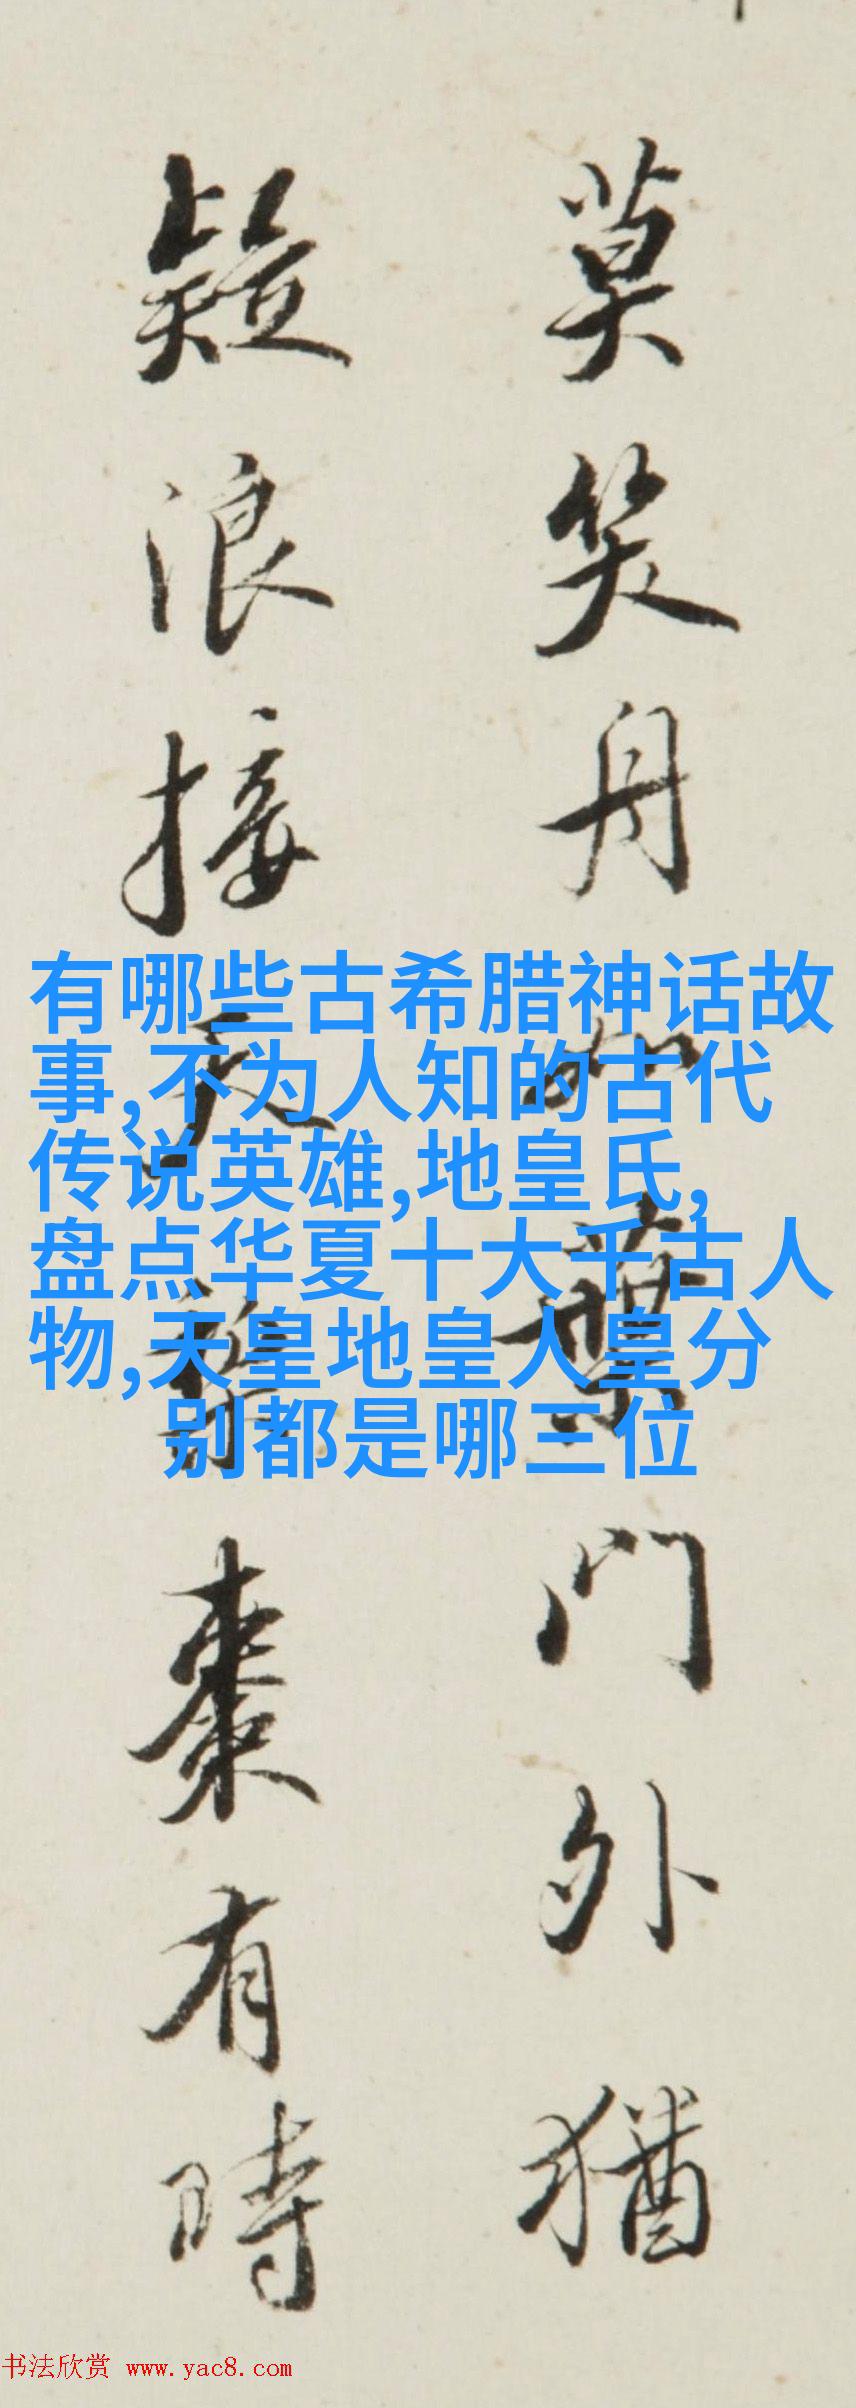 莫笑舟如葉門外猶
疑浪接天
棗有時
有哪些古希腊神话故
事,不为人知的古代
传说英雄,地皇氏,
盘点华夏十大千古人
物,天皇地皇人皇分
别都是哪三位
书法欣赏 www.yac8.com